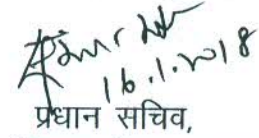 16.1.2018
प्रधान सचिव,